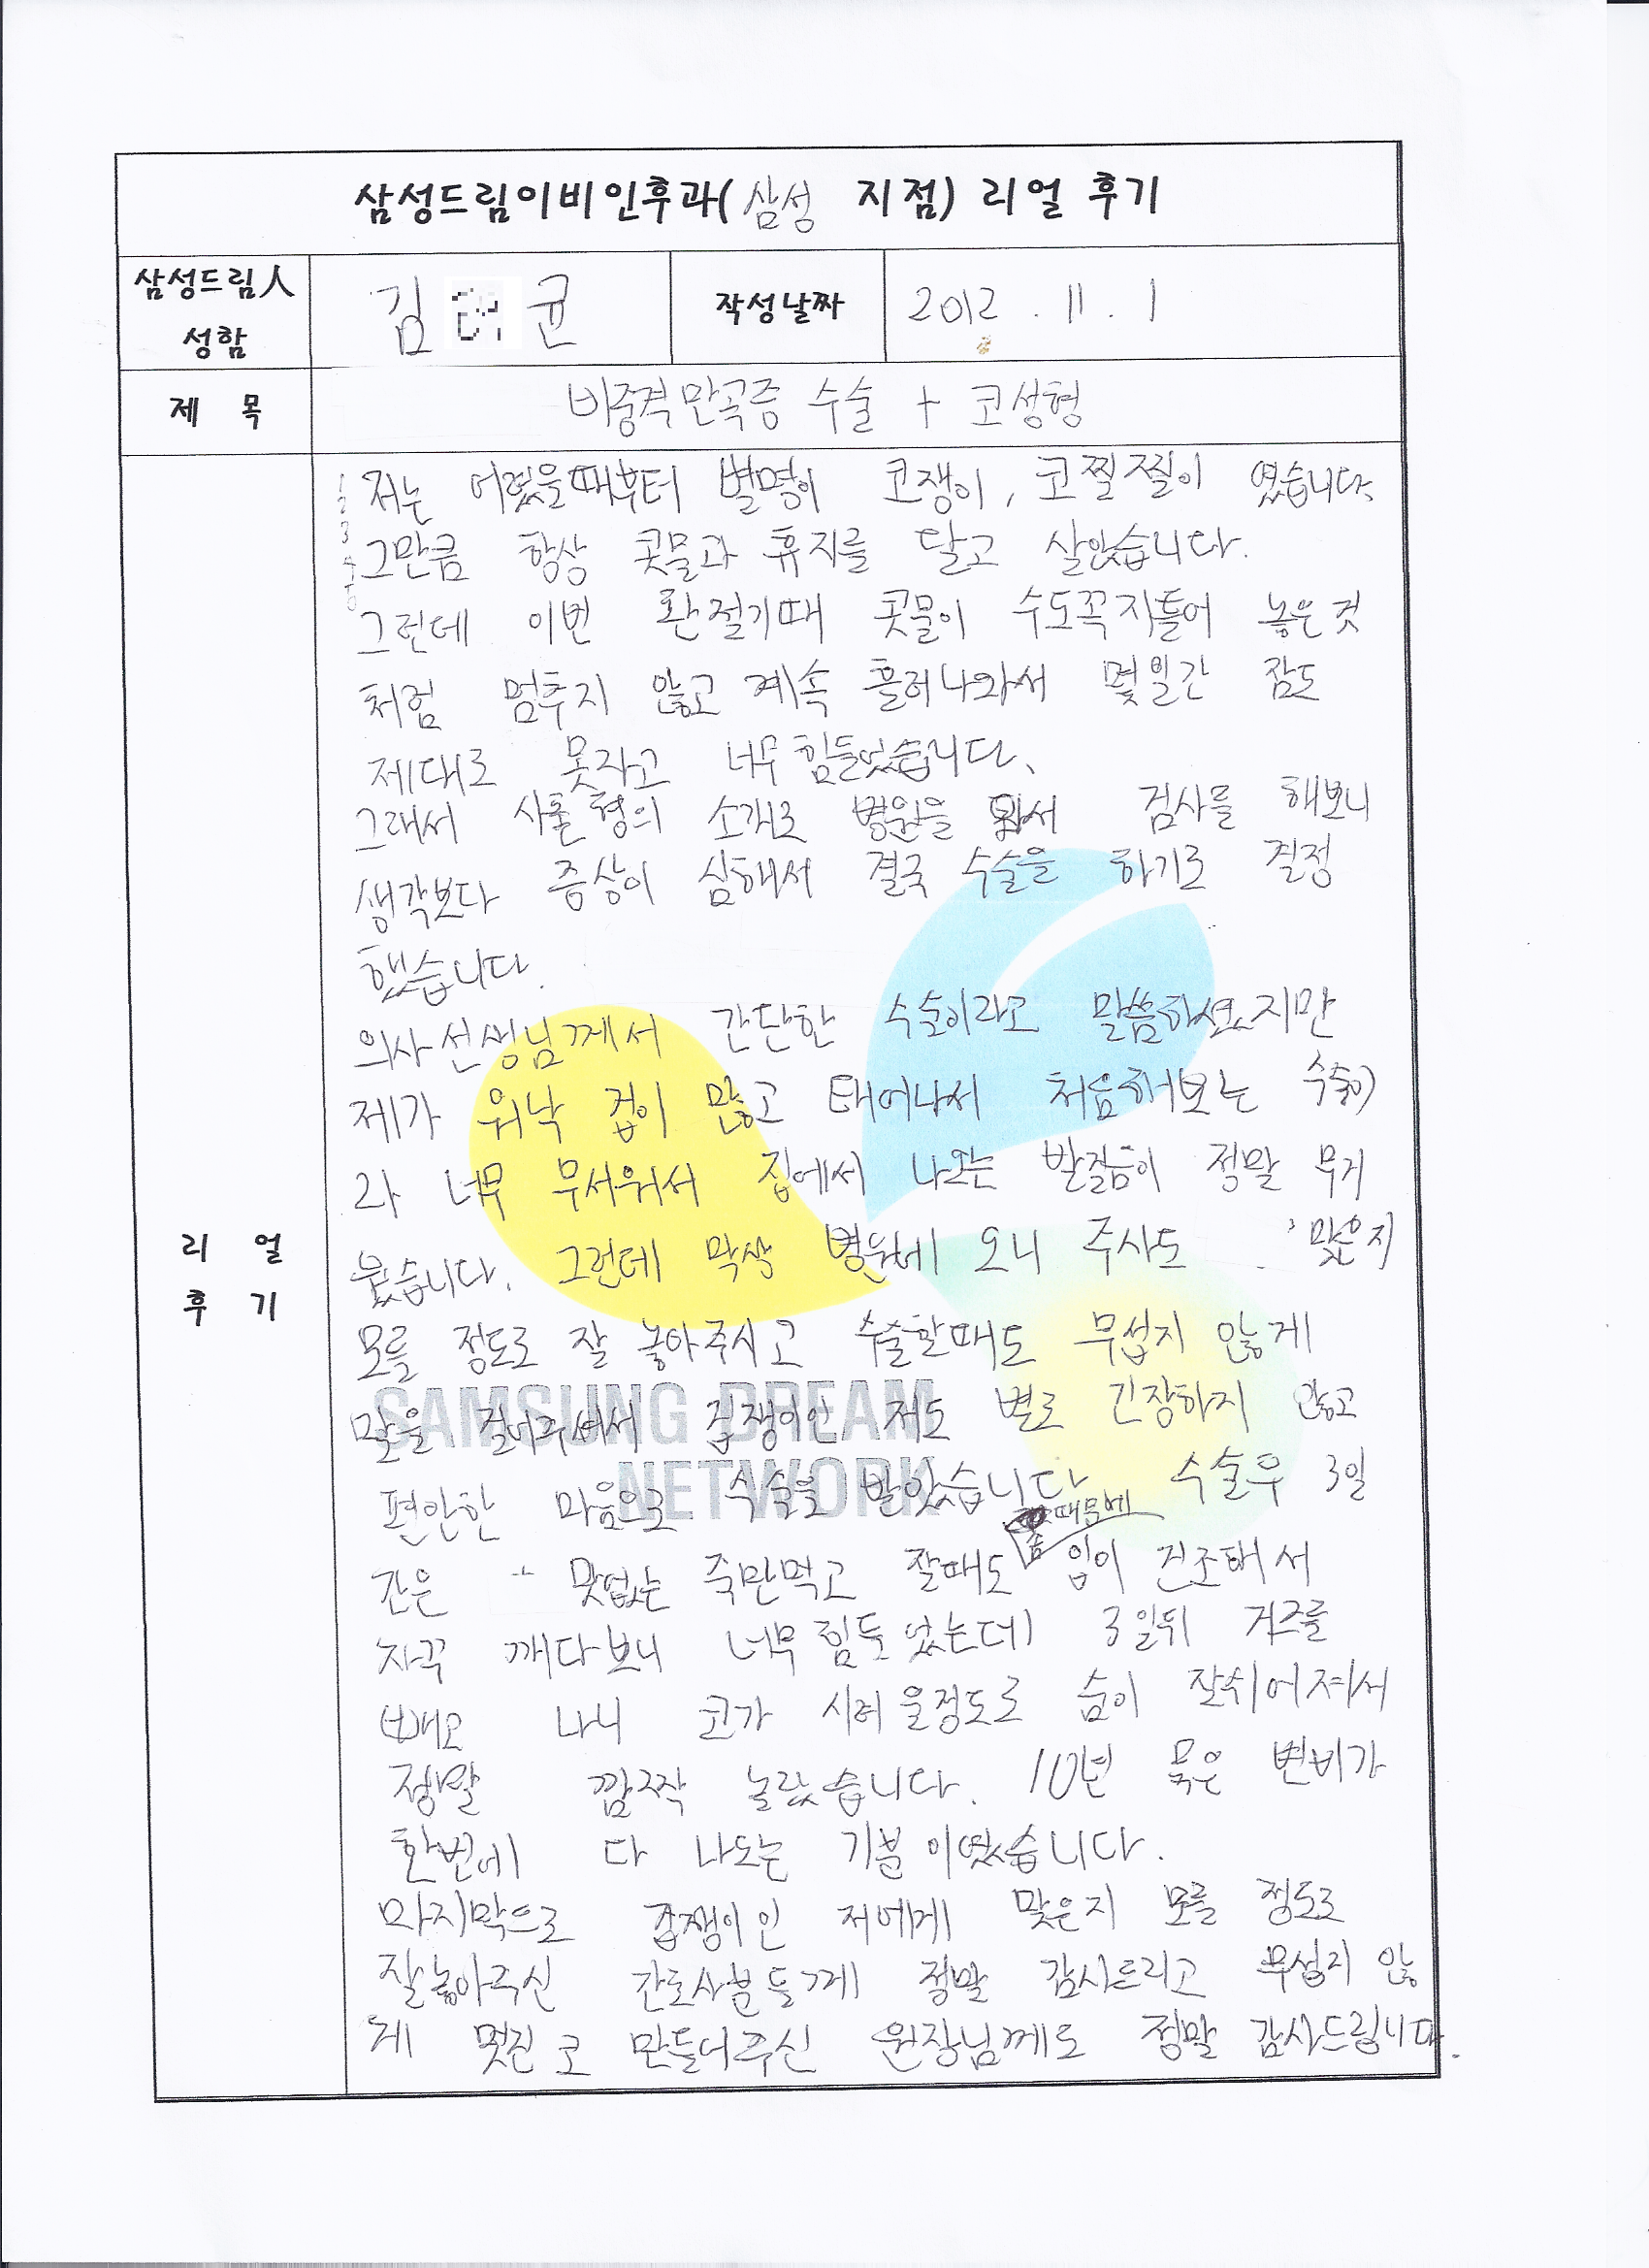 삼성드림이비인후과(삼성 지점) 리얼 후기
삼성드림人
성함
김 균
작성날짜
2012 . 11 . 1
제 목
비중격만곡증 수술 + 코성형
저는 어렸을때부터 별명이 코쟁이, 코찔찔이 였습니다.
그만큼 항상 콧물과 휴지를 달고 살았습니다.
그런데 이번 환절기때 콧물이 수도꼭지틀어 놓은것
처럼 멈추지 않고 계속 흘러나와서 몇일간 잠도
제대로 못자고 너무 힘들었습니다.
그래서 사촌형의 소개로 병원을 와서 검사를 해보니
생각보다 증상이 심해서 결국 수술을 하기로 결정
했습니다.
의사선생님께서 간단한 수술이라고 말씀하셨지만
제가 워낙 겁이 많고 태어나서 처음해보는 수술이
라 너무 무서워서 집에서 나오는 발걸음이 정말 무거
웠습니다. 그런데 막상 병원에 오니 주사도 맞은지
모를 정도로 잘 놓아주시고 수술할때도 무섭지 않게
말을 걸어주셔서 겁쟁이인 저도 별로 긴장하지 않고
편안한 마음으로 수술을 받았습니다 수술후 3일
간은 맛없는 죽만먹고 잘때도 솜때문에 입이 건조해서
자꾸 깨다보니 너무 힘들었는데 3일뒤 거즈를
빼고 나니 코가 시려울정도로 숨이 잘쉬어져서
정말 깜짝 놀랐습니다. 10년 묵은 변비가
한번에 다 나오는 기분이였습니다.
마지막으로 겁쟁이인 저에게 맞은지 모를 정도로
잘놓아주신 간호사분들께 정말 감사드리고 무섭지 않
게 멋진 코 만들어주신 원장님께도 정말 감사드립니다.
리 얼
후 기
SAMSUNG DREAM
NETWORK